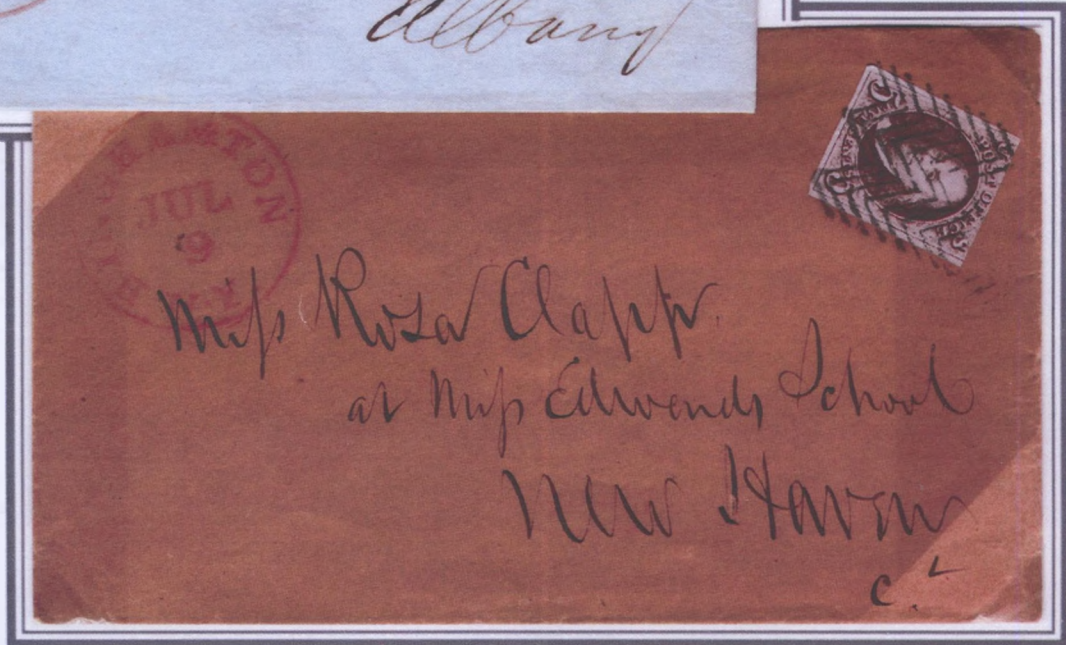 Albany
BINGHAMTON
JUL
9
N.Y
Miss Rosa Clapp.
at Miss Edwards School
New Haven
Ct
POST OFFICE